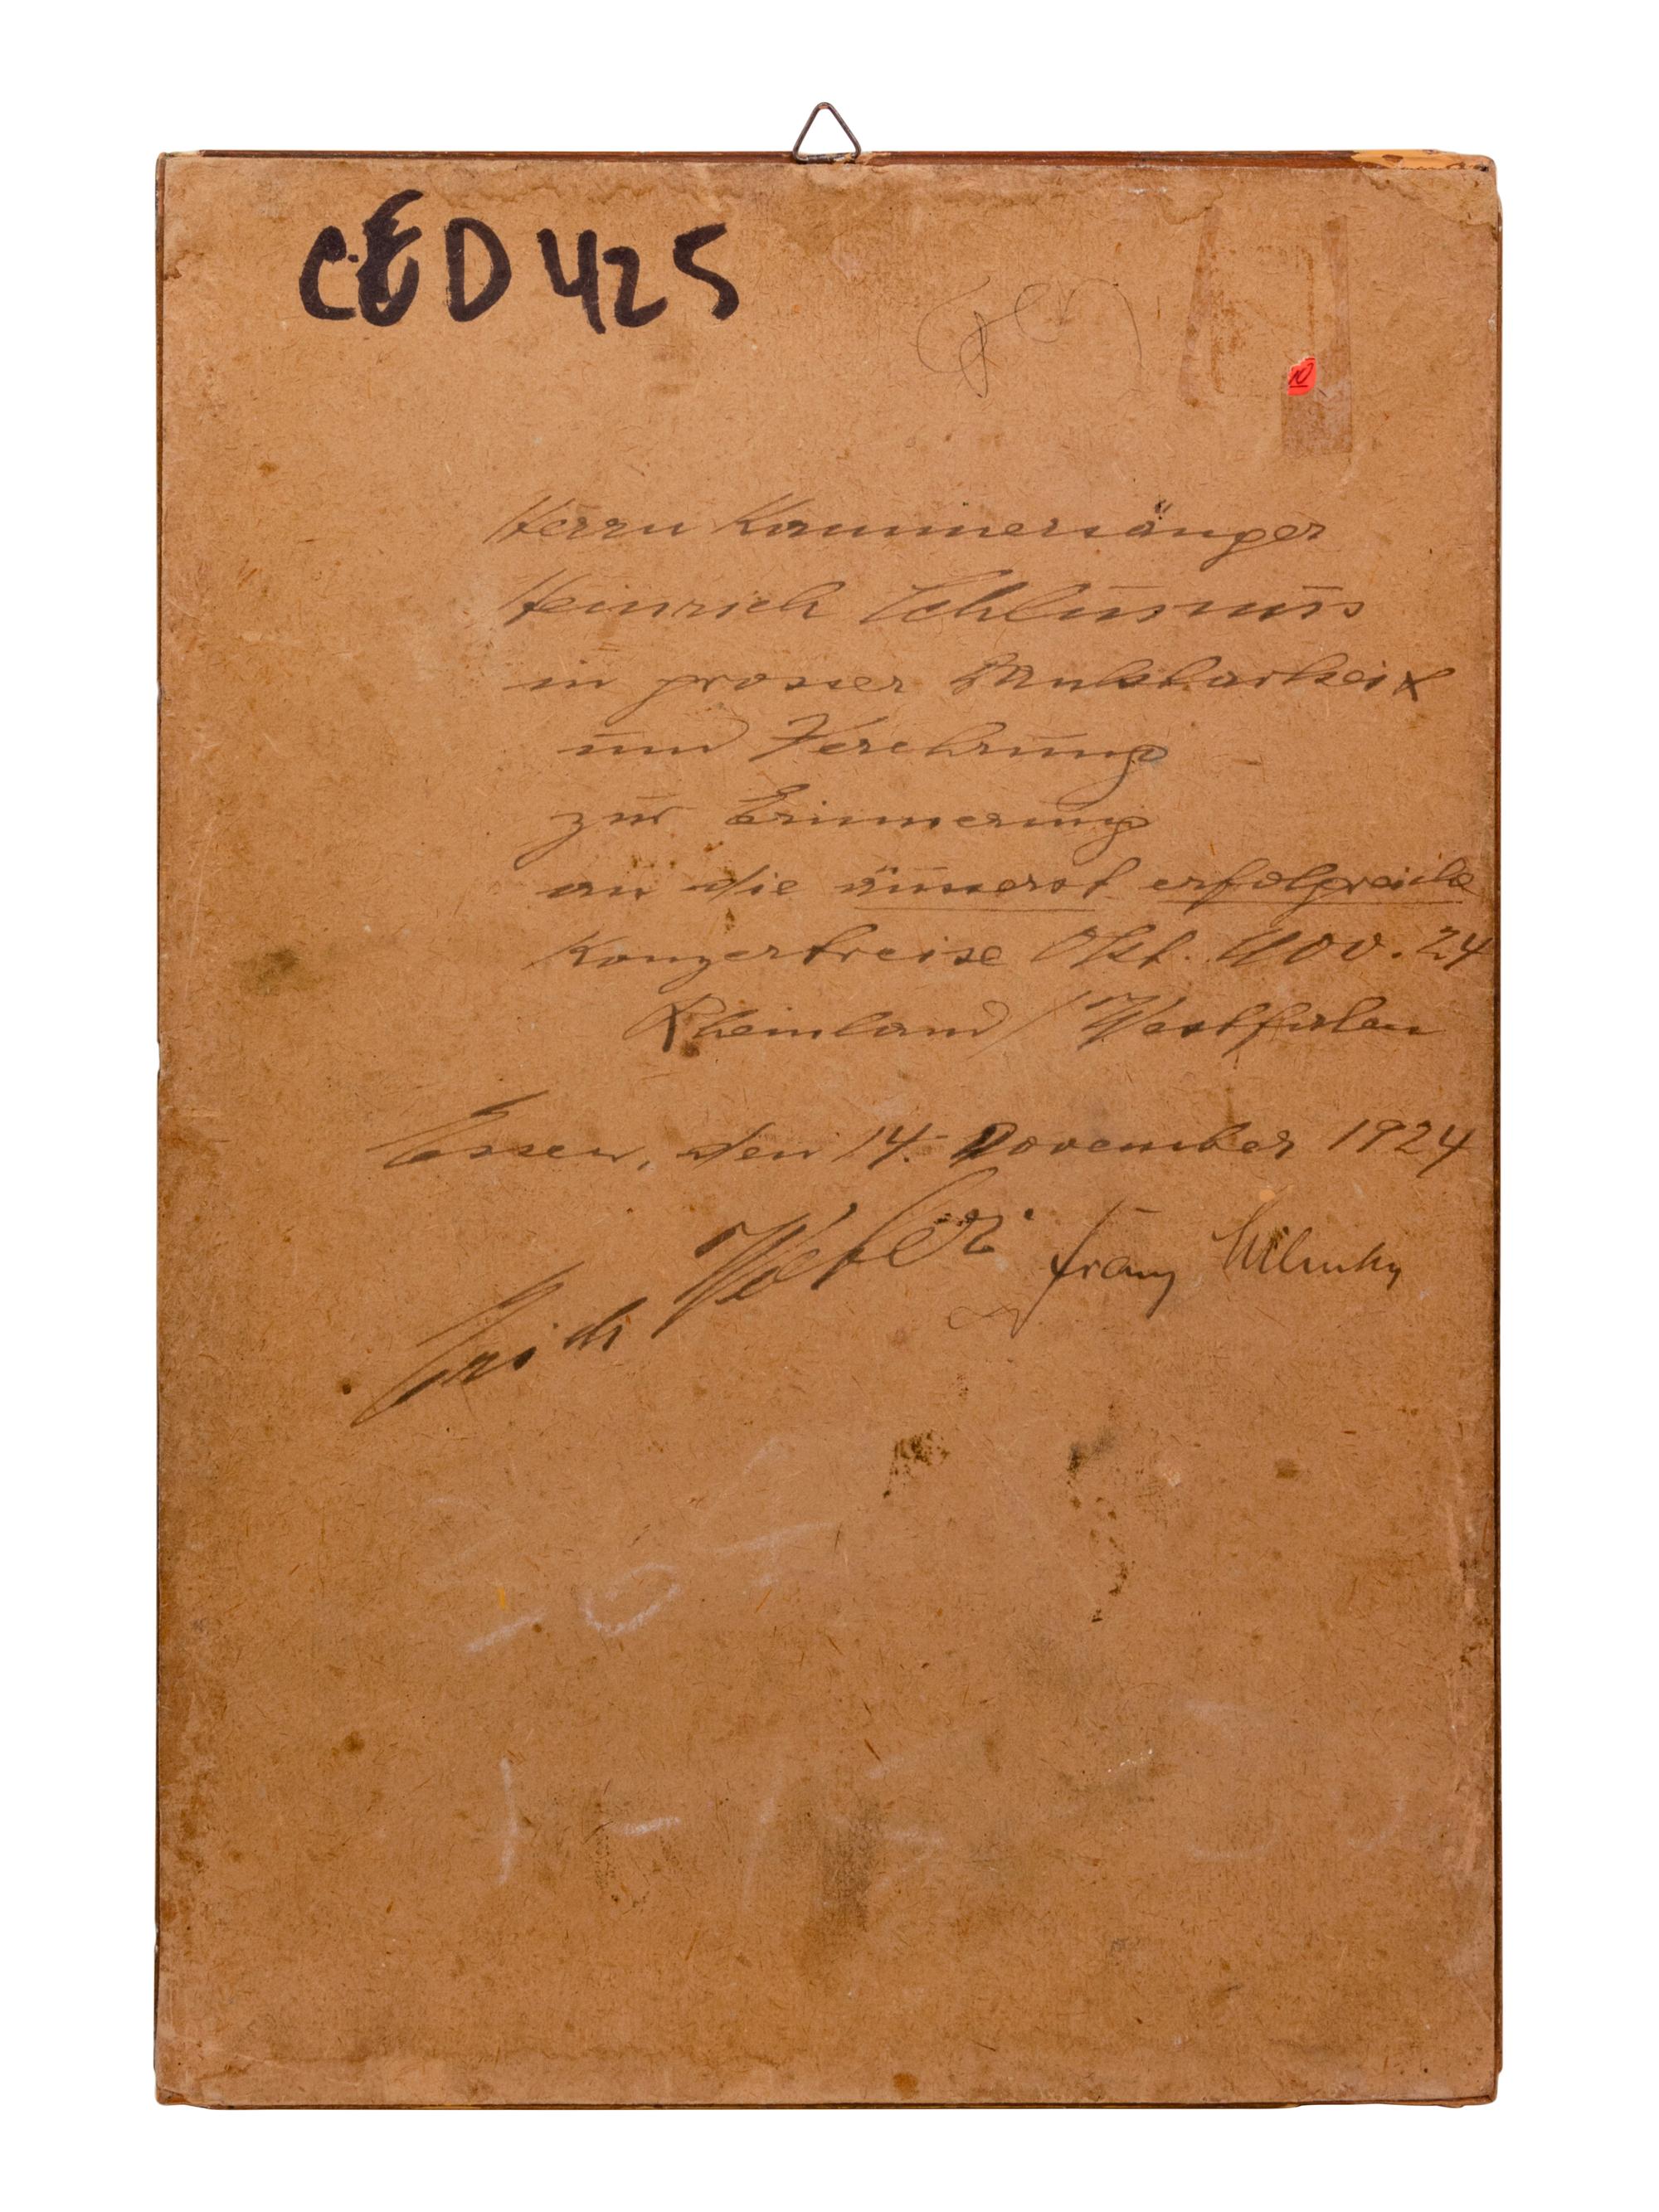 CED 425
10
Herrn Kammersänger
Heinrich Schlusnus
in grosser Dankbarkeit
und Verehrung
zur Erinnerung
an die äusserst erfolgreiche
Konzertreise Okt. Nov. 24
Rheinland / Westfalen
Essen, den 14. November 1924
Erich Weber Franz